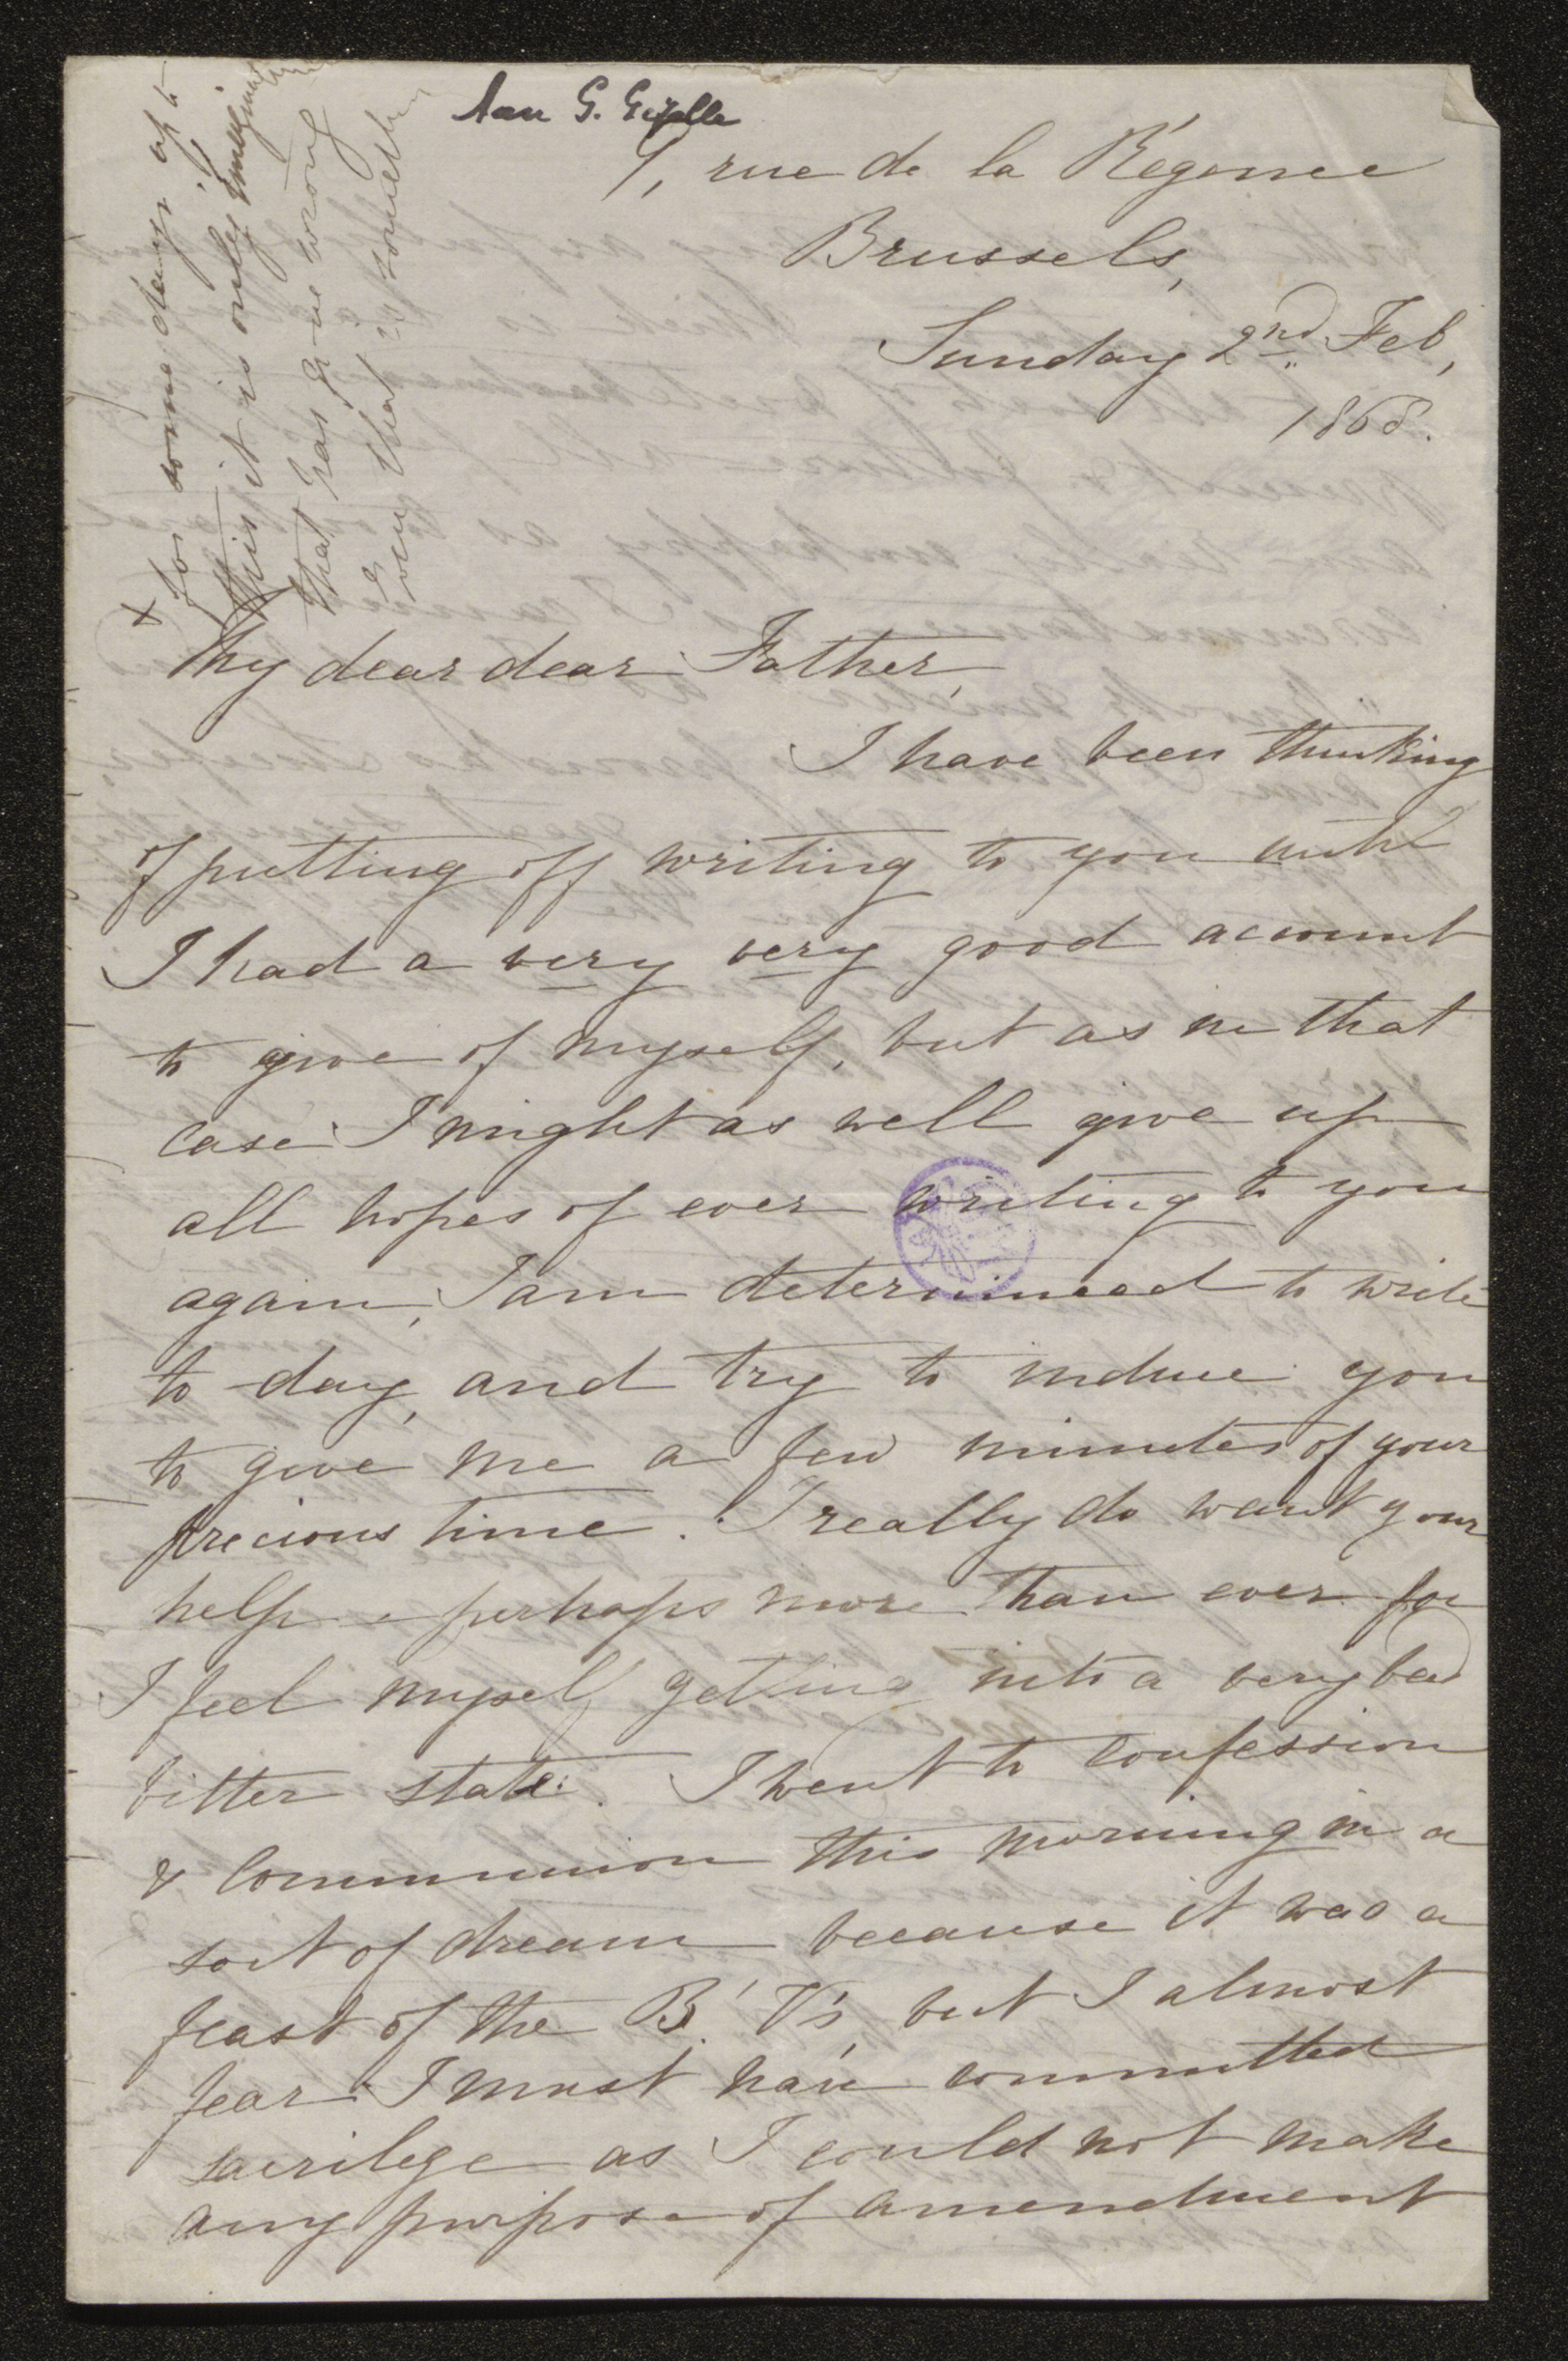 Aan G. Gezelle
1, rue de la Régence
Brussels,
Sunday 2nd Feb,
1868.
x for some days up to
this it is only
that has gone wrong
even that is
My dear dear Father,
I have been thinking
of putting off writing to you until
I had a very very good account
to give of myself, but as in that
case I might as well give up
all hopes of ever writing to you
again, I am determined to write
to-day, and try to induce you
to give me a few minutes of your
precious time. I really do want your
help & perhaps more than ever for
I feel myself getting into a very bad
bitter state. I went to Confession
& Communion this morning in a
sort of dream because it was a
feast of the B. V's, but I almost
fear I must have committed
sacrilege as I could not make
any purpose of amendment